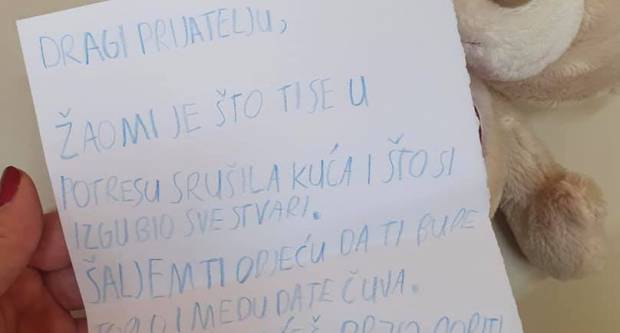 DRAGI PRIJATELJU,
ŽAOMI JE ŠTO TISE U
POTRESU SRUŠILA KUĆA I ŠTO SI
IZGUBIO SVE STVARI.
ŠALJEMTI ODJEĆU DA TI BUDE
TOPLO I MEDU DATE ČUVA.